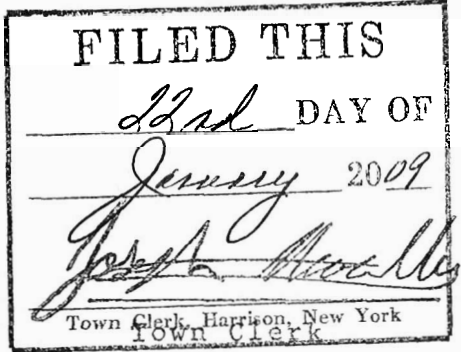 FILED THIS
22nd DAY OF
January 2009
Joseph
Town Clerk, Harrison, New York
Town Clerk